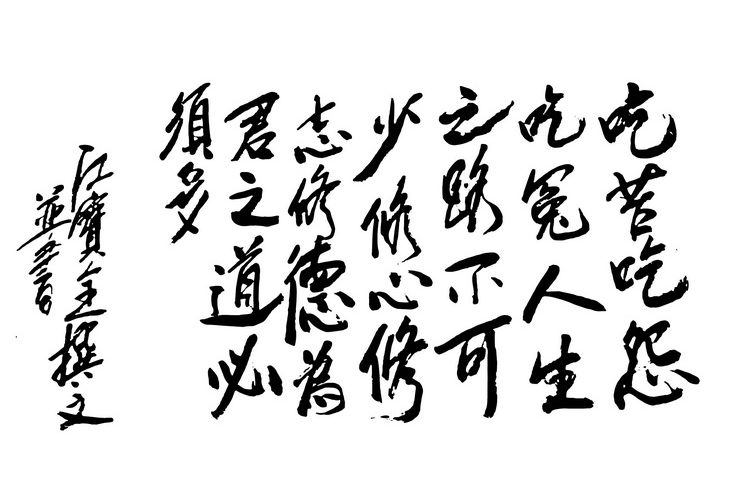 吃苦吃怨
吃冤人生
之路不可
少修心修
志修德為
君之道必
須多
江寶全撰文
並書